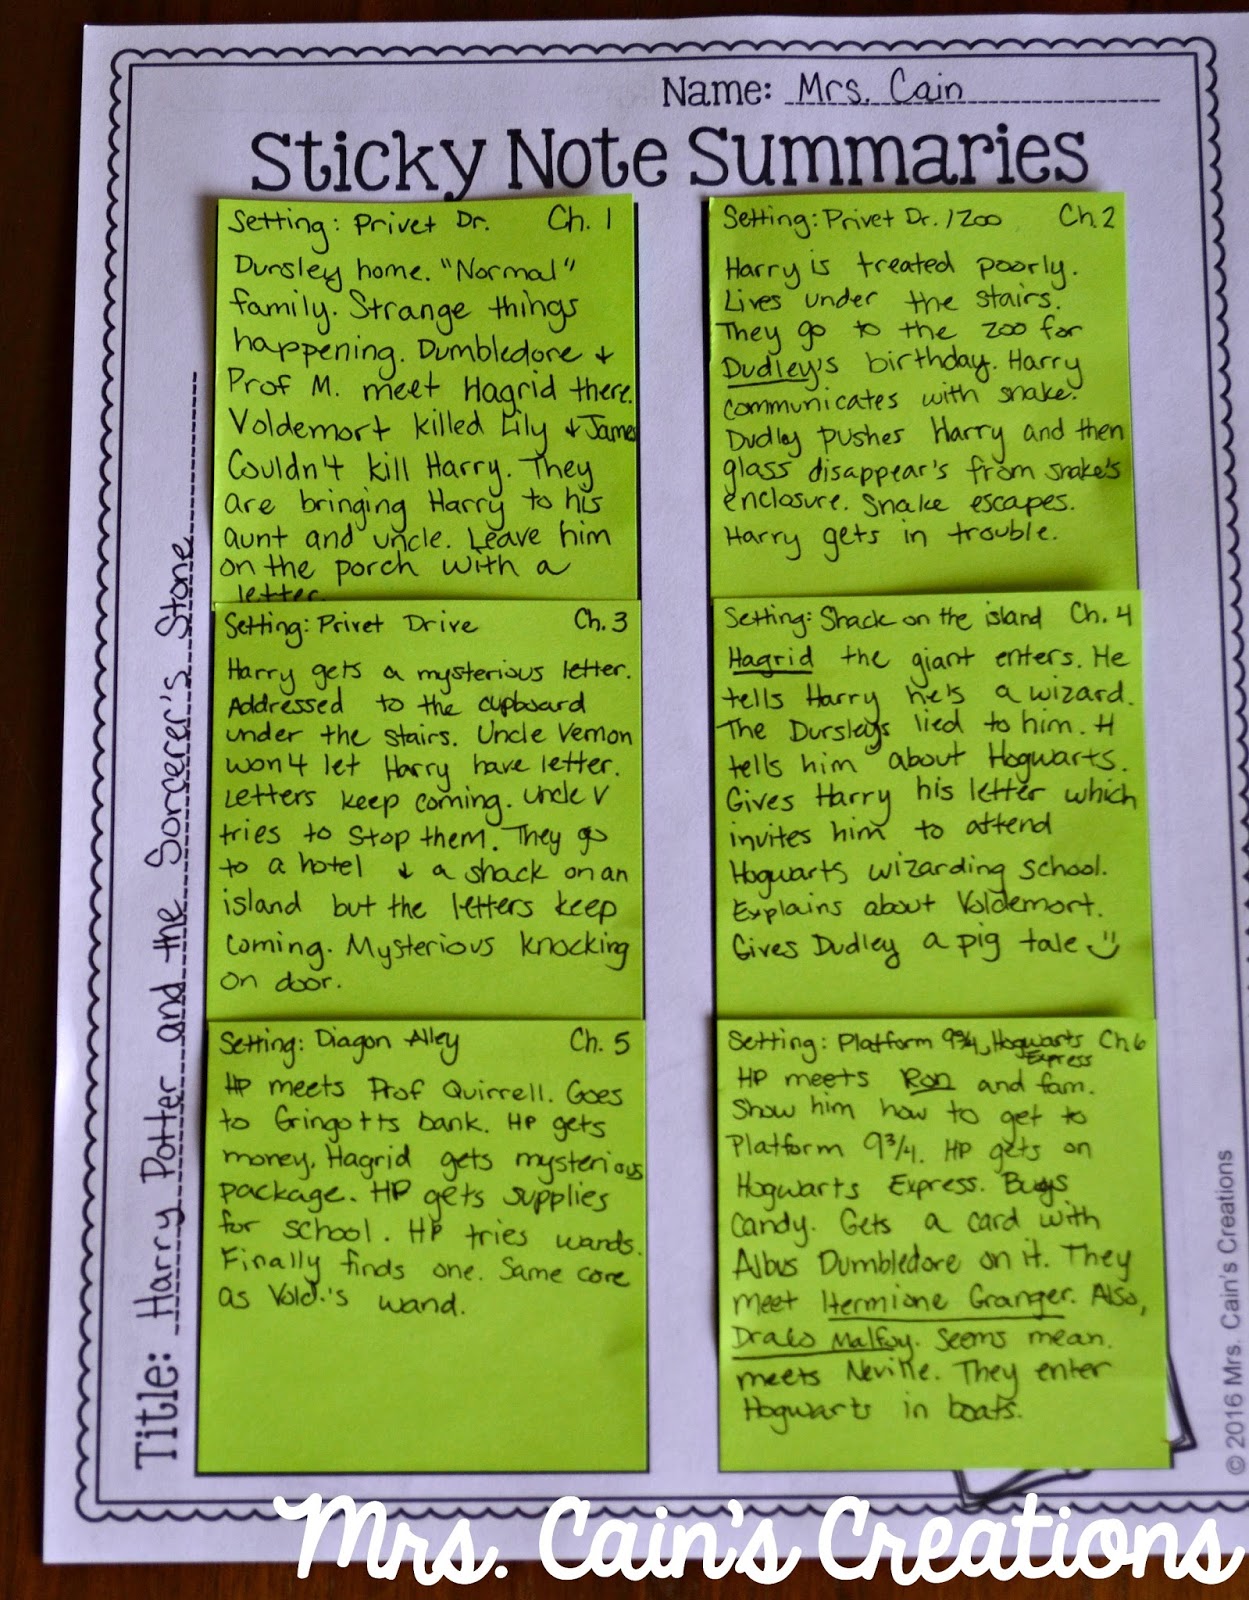 Name: Mrs. Cain
Sticky Note Summaries
Title: Harry Potter and the Sorcerer's Stone
Setting: Privet Dr. Ch. 1
Dursley home. "Normal"
family. Strange things
happening. Dumbledore &
Prof M. meet Hagrid there.
Voldemort killed Lily & James
Couldn't kill Harry. They
are bringing Harry to his
aunt and uncle. Leave him
on the porch with a
letter.
Setting: Privet Dr./Zoo Ch. 2
Harry is treated poorly.
Lives under the stairs.
They go to the zoo for
Dudley's birthday. Harry
communicates with snake.
Dudley pushes Harry and then
glass disappear's from snake's
enclosure. Snake escapes.
Harry gets in trouble.
Setting: Privet Drive Ch. 3
Harry gets a mysterious letter.
Addressed to the cupboard
under the stairs. Uncle Vernon
won't let Harry have letter.
Letters keep coming. Uncle V
tries to stop them. They go
to a hotel & a shack on an
island but the letters keep
coming. Mysterious knocking
on door.
Setting: Shack on the island Ch. 4
Hagrid the giant enters. He
tells Harry he's a wizard.
The Dursleys lied to him. H
tells him about Hogwarts.
Gives Harry his letter which
invites him to attend
Hogwarts wizarding school.
Explains about Voldemort.
Gives Dudley a pig tale
Setting: Diagon Alley Ch. 5
HP meets Prof Quirrell. Goes
to Gringotts bank. HP gets
money, Hagrid gets mysterious
package. HP gets supplies
for school. HP tries wands.
Finally finds one. Same core
as Vold.'s wand.
Setting: Platform 9 3/4, Hogwarts Express Ch. 6
HP meets Ron and fam.
Show him how to get to
Platform 9 3/4. HP gets on
Hogwarts Express. Buys
candy. Gets a card with
Albus Dumbledore on it. They
meet Hermione Granger. Also,
Draco Malfoy. Seems mean.
meets Neville. They enter
Hogwarts in boats.
© 2016 Mrs. Cain's Creations
Mrs. Cain's Creations